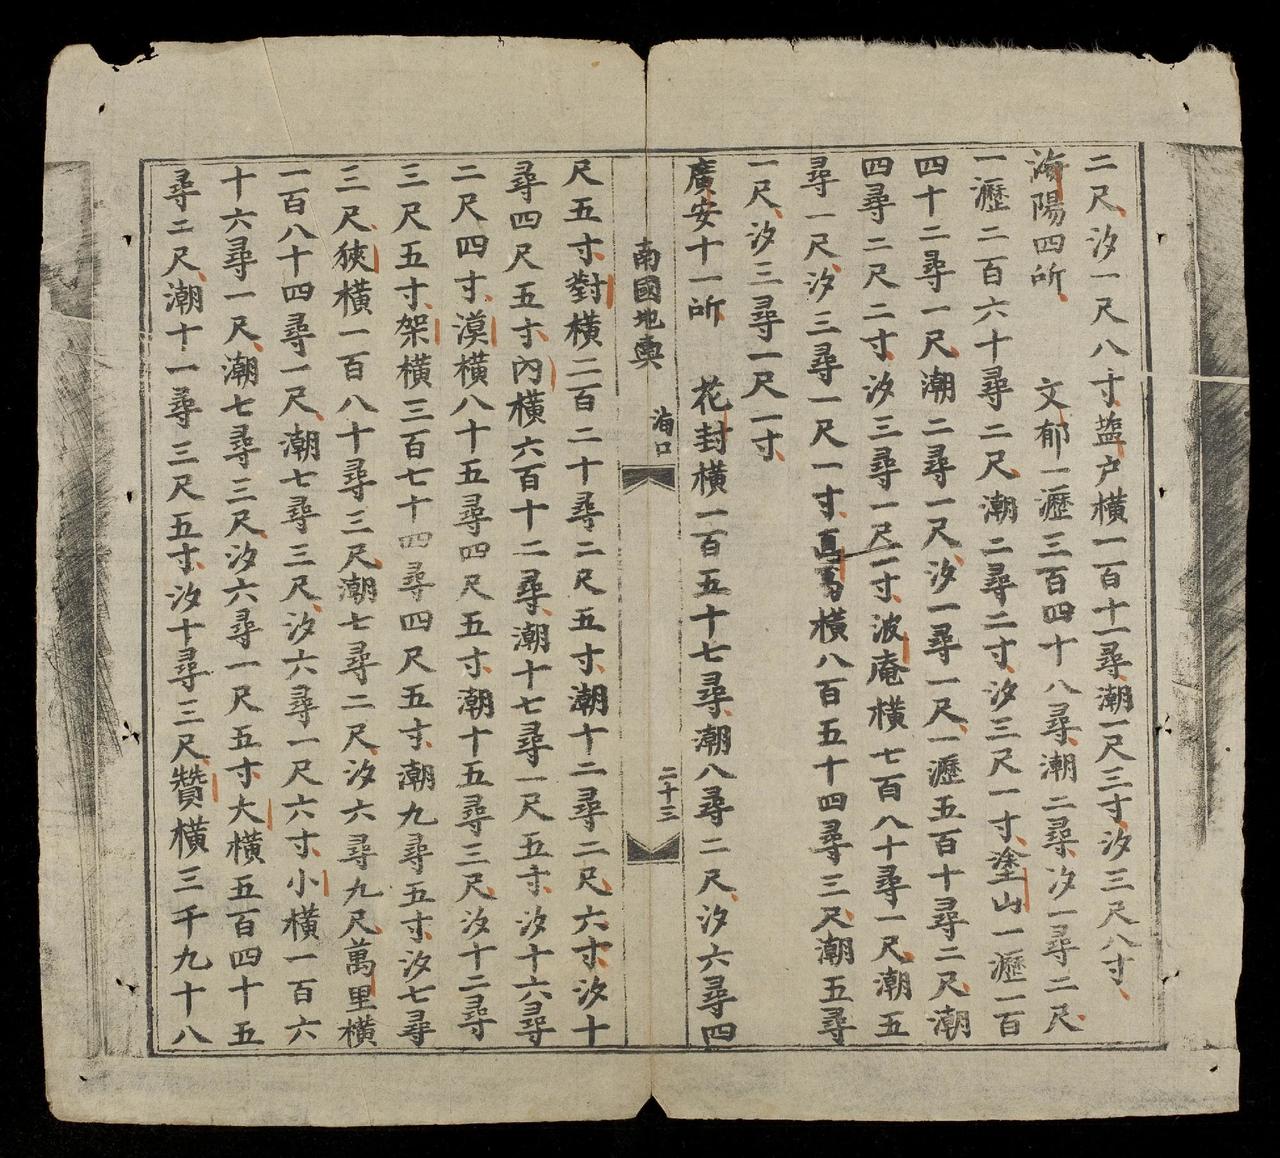 二尺汐一尺八寸盐户橫一百十一尋潮一尺三寸汐三尺八寸
海陽四所　文郁一瀝三百四十八尋潮二尋汐一尋二尺
一瀝二百六十尋二尺潮二尋二寸汐三尺一寸塗山一瀝一百
四十二尋一尺潮二尋一尺汐一尋一尺一瀝五百十尋二尺潮
四尋二尺二寸汐三尋一尺一寸波庵橫七百八十尋一尺潮五
尋一尺汐三尋一尺一寸橫八百五十四尋三尺潮五尋
一尺汐三尋一尺一寸
廣安十一所　花封橫一百五十七尋潮八尋二尺汐六尋四
南國地輿　海口　二十三
尺五寸對橫二百二十尋二尺五寸潮十二尋二尺六寸汐十
尋四尺五寸內橫六百十二尋潮十七尋一尺五寸汐十六尋
二尺四寸漠橫八十五尋四尺五寸潮十五尋三尺汐十二尋
三尺五寸架橫三百七十四尋四尺五寸潮九尋五寸汐七尋
三尺狹橫一百八十尋三尺潮七尋二尺汐六尋九尺萬里橫
一百八十四尋一尺潮七尋三尺汐六尋一尺六寸小橫一百六
十六尋一尺潮七尋三尺汐六尋一尺五寸大橫五百四十五
尋二尺潮十一尋三尺五寸汐十尋三尺贊橫三千九十八